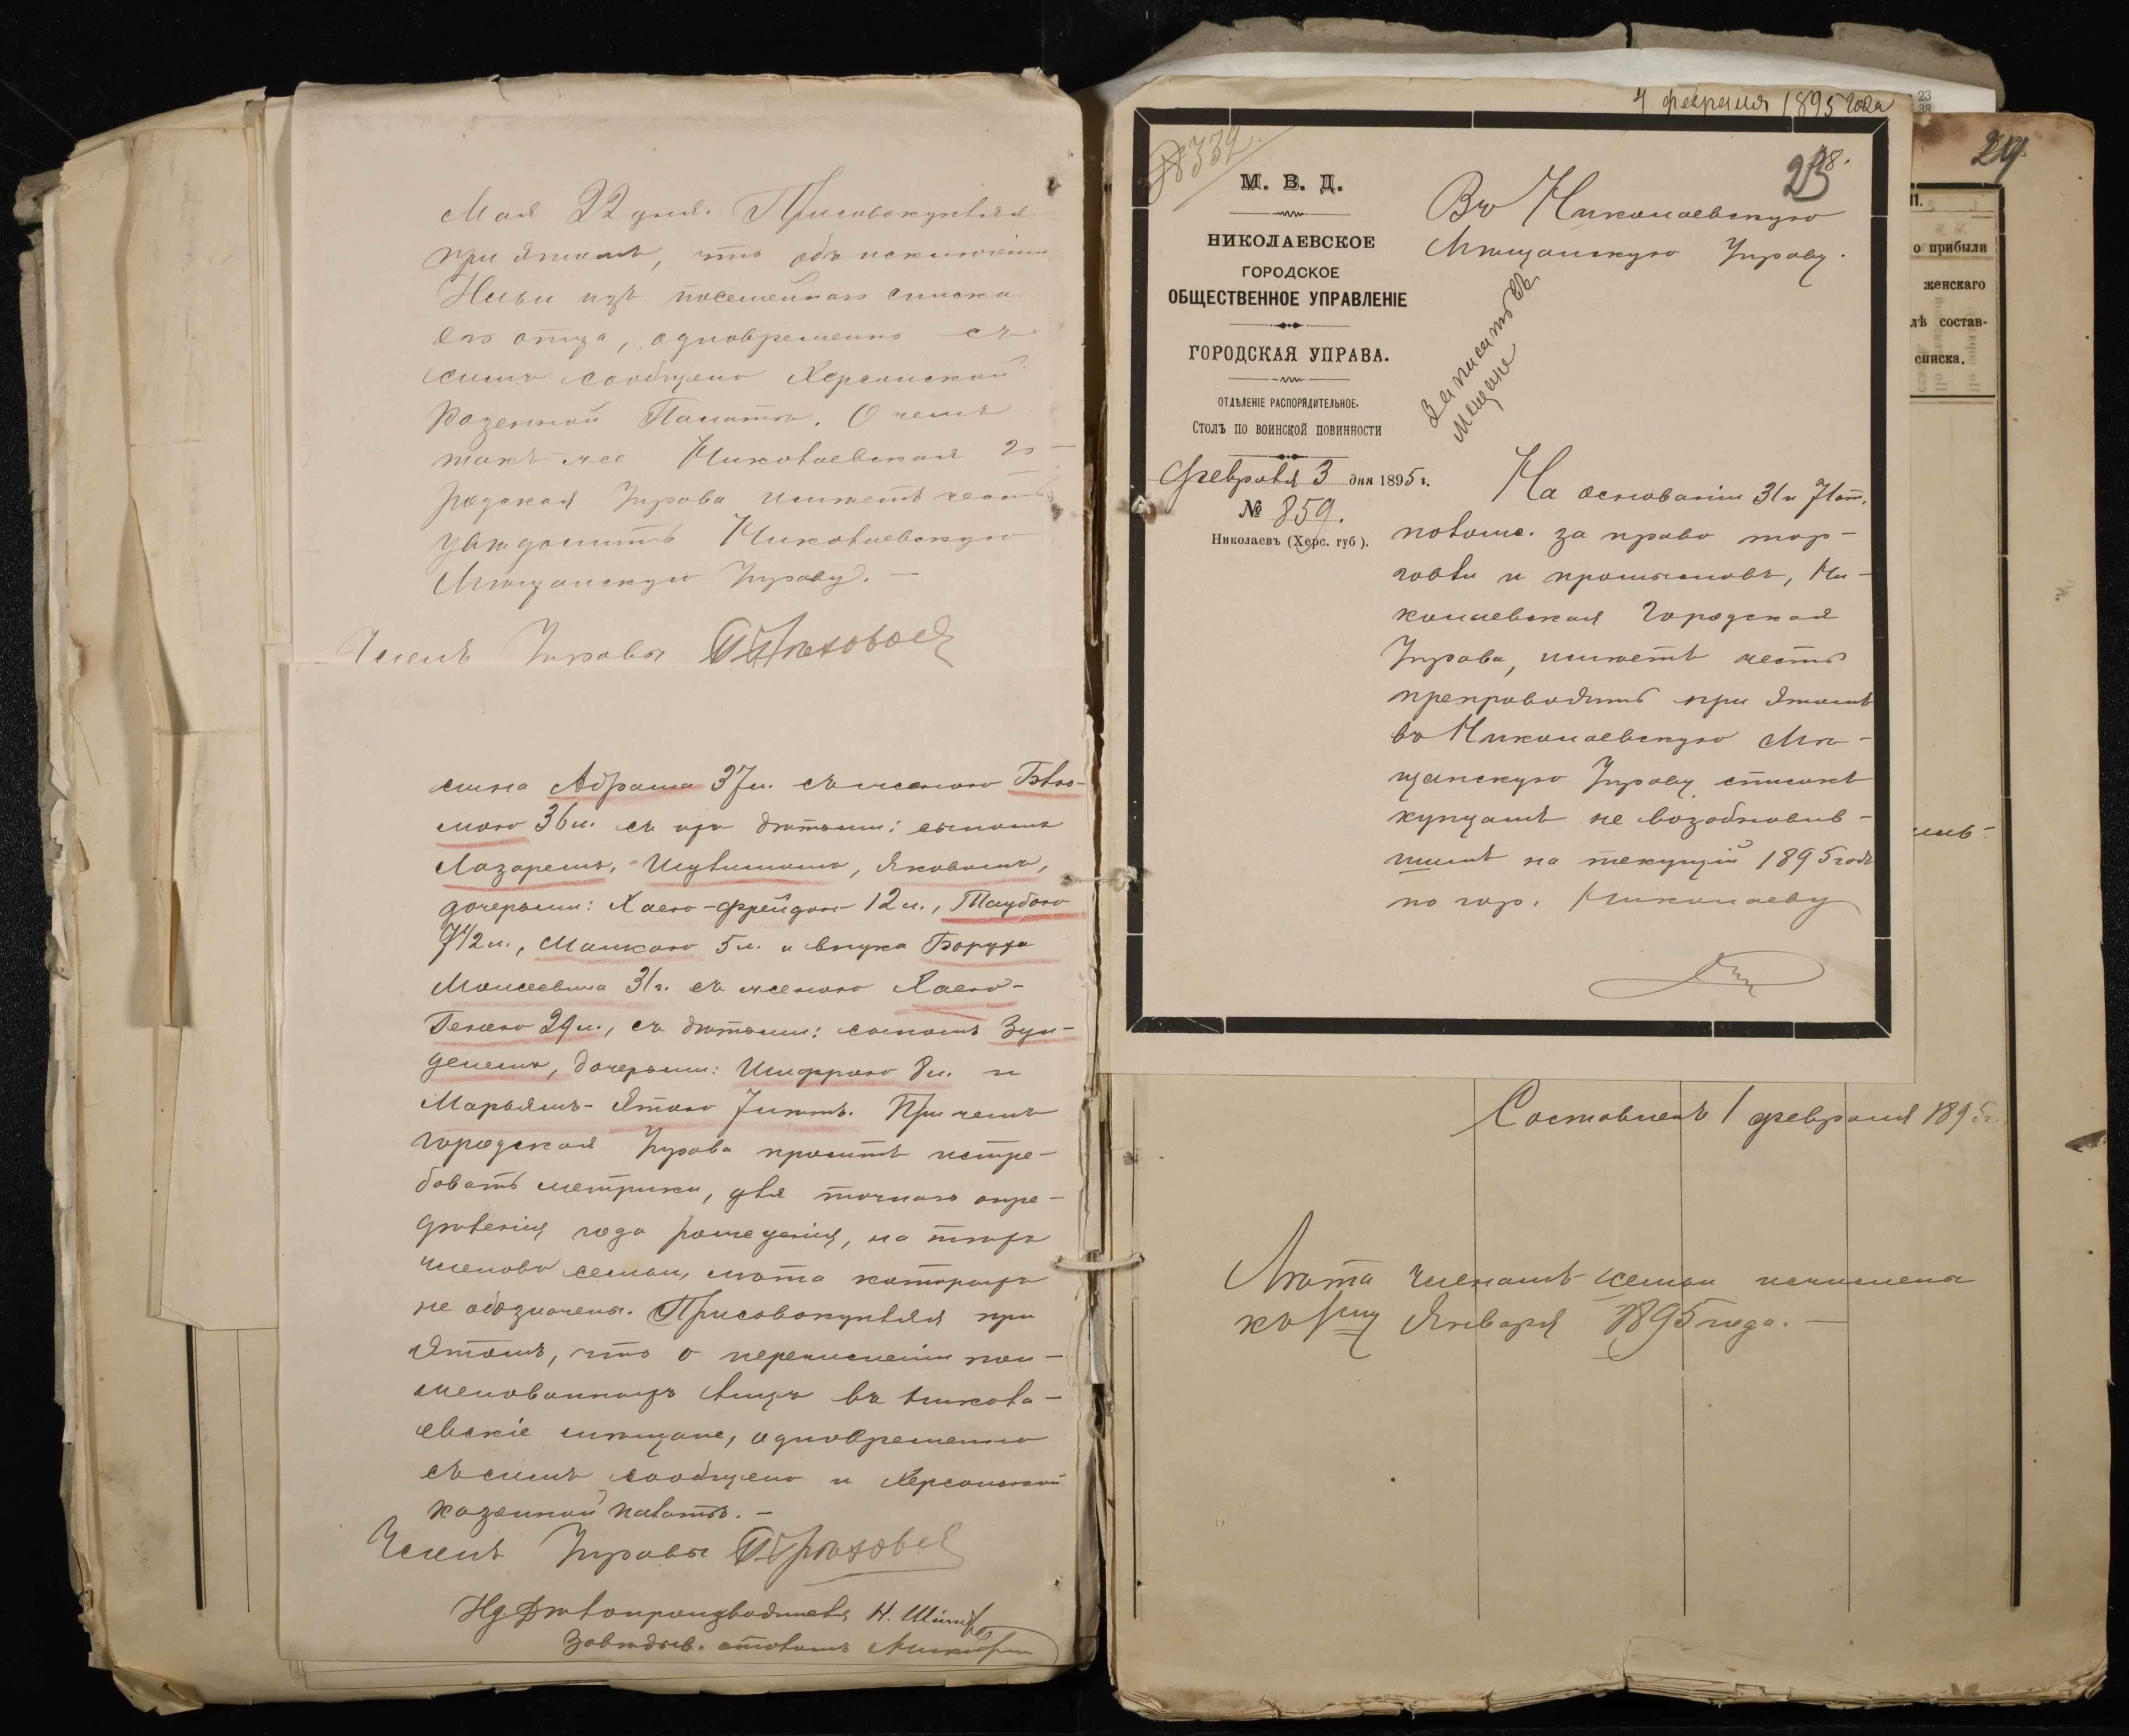 Мая 22 дня. Присовокупляя
при этомъ, что объ исключеніи
Ильи изъ посемейнаго списка
его отца, одновременно съ
симъ сообщено Херсонской
Казенной Палатѣ. О чемъ
также Николаевская Го-
родская Управа имѣетъ честь
увѣдомить Николаевскую
Мѣщанскую Управу. —
Членъ Управы
сына Абрама 37 л. съ женою Блю-
мою 36 л. съ ихъ дѣтьми: сыномъ
Лазаремъ, Шулимомъ, Яковомъ,
дочерьми: Хаею-Фрейдою 12 л., Таубою
7 1/2 л., Малкою 5 л. и внука Боруха
Моисеевича 31 г. съ женою Хаею-
Генею 29 л., съ дѣтьми: сыномъ Зун-
делемъ, дочерьми: Шифрою 8 л. и
Марьямъ-Этою 7 лѣтъ. При чемъ
городская Управа проситъ истре-
бовать метрики, для точнаго опре-
дѣленія года рожденія, на тѣхъ
членовъ семьи, лѣта которыхъ
не обозначены. Присовокупляя при
этомъ, что о перечисленіи пои-
менованныхъ лицъ въ никола-
евскіе мѣщане, одновременно
съ симъ сообщено и Херсонской
казенной палатѣ. —
Членъ Управы
И.д. Дѣлопроизводителя Н.
Завѣдыв. столомъ
4 февраля 1895 года
23
38
332.
23
М. В. Д.
НИКОЛАЕВСКОЕ
ГОРОДСКОЕ
ОБЩЕСТВЕННОЕ УПРАВЛЕНІЕ
ГОРОДСКАЯ УПРАВА.
ОТДѢЛЕНІЕ РАСПОРЯДИТЕЛЬНОЕ.
Столъ по воинской повинности
Февраля 3 дня 1895 г.
№ 859.
Николаевъ (Херс. губ).
Въ Николаевскую
Мѣщанскую Управу.
Записать въ
мещане
На основаніи 31 и 71 ст.
полож. за право тор-
говли и промысловъ, Ни-
колаевская Городская
Управа, имѣетъ честь
препроводить при этомъ
въ Николаевскую Мѣ-
щанскую Управу списокъ
купцамъ не возобновив-
шимъ на текущій 1895 годъ
по гор. Николаеву
29
11.
о прибыли
женскаго
лѣ состав-
списка.
Составленъ 1 февраля 1895 г.
Лѣта членамъ семьи исчислены
къ 1му Января 1895 года. —